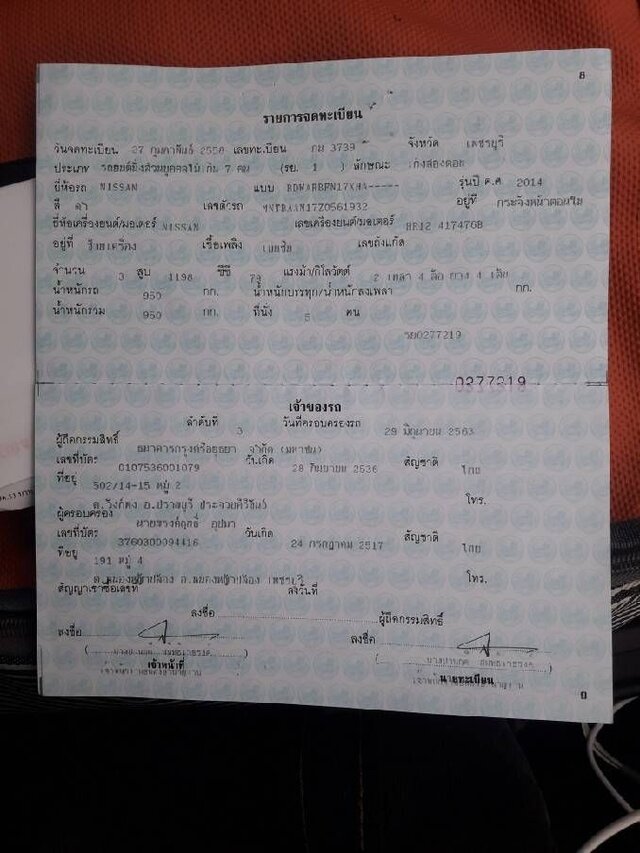 8
รายการจดทะเบียน
วันจดทะเบียน 27 กุมภาพันธ์ 2558 เลขทะเบียน กน 3739 จังหวัด เพชรบุรี
ประเภท รถยนต์นั่งส่วนบุคคลไม่เกิน 7 คน (รย. 1 ) ลักษณะ เก๋งสองตอน
ยี่ห้อรถ NISSAN แบบ รุ่นปี ค.ศ. 2014
สี ดำ เลขตัวรถ MNTBAAN17Z0561932 อยู่ที่ กระจังหน้าตอนใน
ยี่ห้อเครื่องยนต์/มอเตอร์ NISSAN เลขเครื่องยนต์/มอเตอร์ HR12 417476B
อยู่ที่ ซ้ายเครื่อง เชื้อเพลิง เบนซิน เลขถังแก๊ส
จำนวน 3 สูบ 1198 ซีซี 79 แรงม้า/กิโลวัตต์ 2 เพลา 4 ล้อ ยาง 4 เส้น
น้ำหนักรถ 950 กก. น้ำหนักบรรทุก/น้ำหนักลงเพลา กก.
น้ำหนักรวม 950 กก. ที่นั่ง 5 คน
รย0277219
0277219
เจ้าของรถ
ลำดับที่ 3 วันที่ครอบครองรถ 29 มิถุนายน 2563
ผู้ถือกรรมสิทธิ์ ธนาคารกรุงศรีอยุธยา จำกัด (มหาชน)
เลขที่บัตร 0107536001079 วันเกิด 28 กันยายน 2536 สัญชาติ ไทย
ที่อยู่ 502/14-15 หมู่ 2
ต.วังก์พง อ.ปราณบุรี ประจวบคีรีขันธ์ โทร.
ผู้ครอบครอง นายทรงศักดิ์ อุปมา
เลขที่บัตร 3760300094416 วันเกิด 24 กรกฎาคม 2517 สัญชาติ ไทย
ที่อยู่ 191 หมู่ 4
ต.หนองหญ้าปล้อง อ.หนองหญ้าปล้อง เพชรบุรี โทร.
สัญญาเช่าซื้อเลขที่ ลงวันที่
ลงชื่อ ผู้ถือกรรมสิทธิ์
ลงชื่อ ลงชื่อ
เจ้าหน้าที่ นายทะเบียน